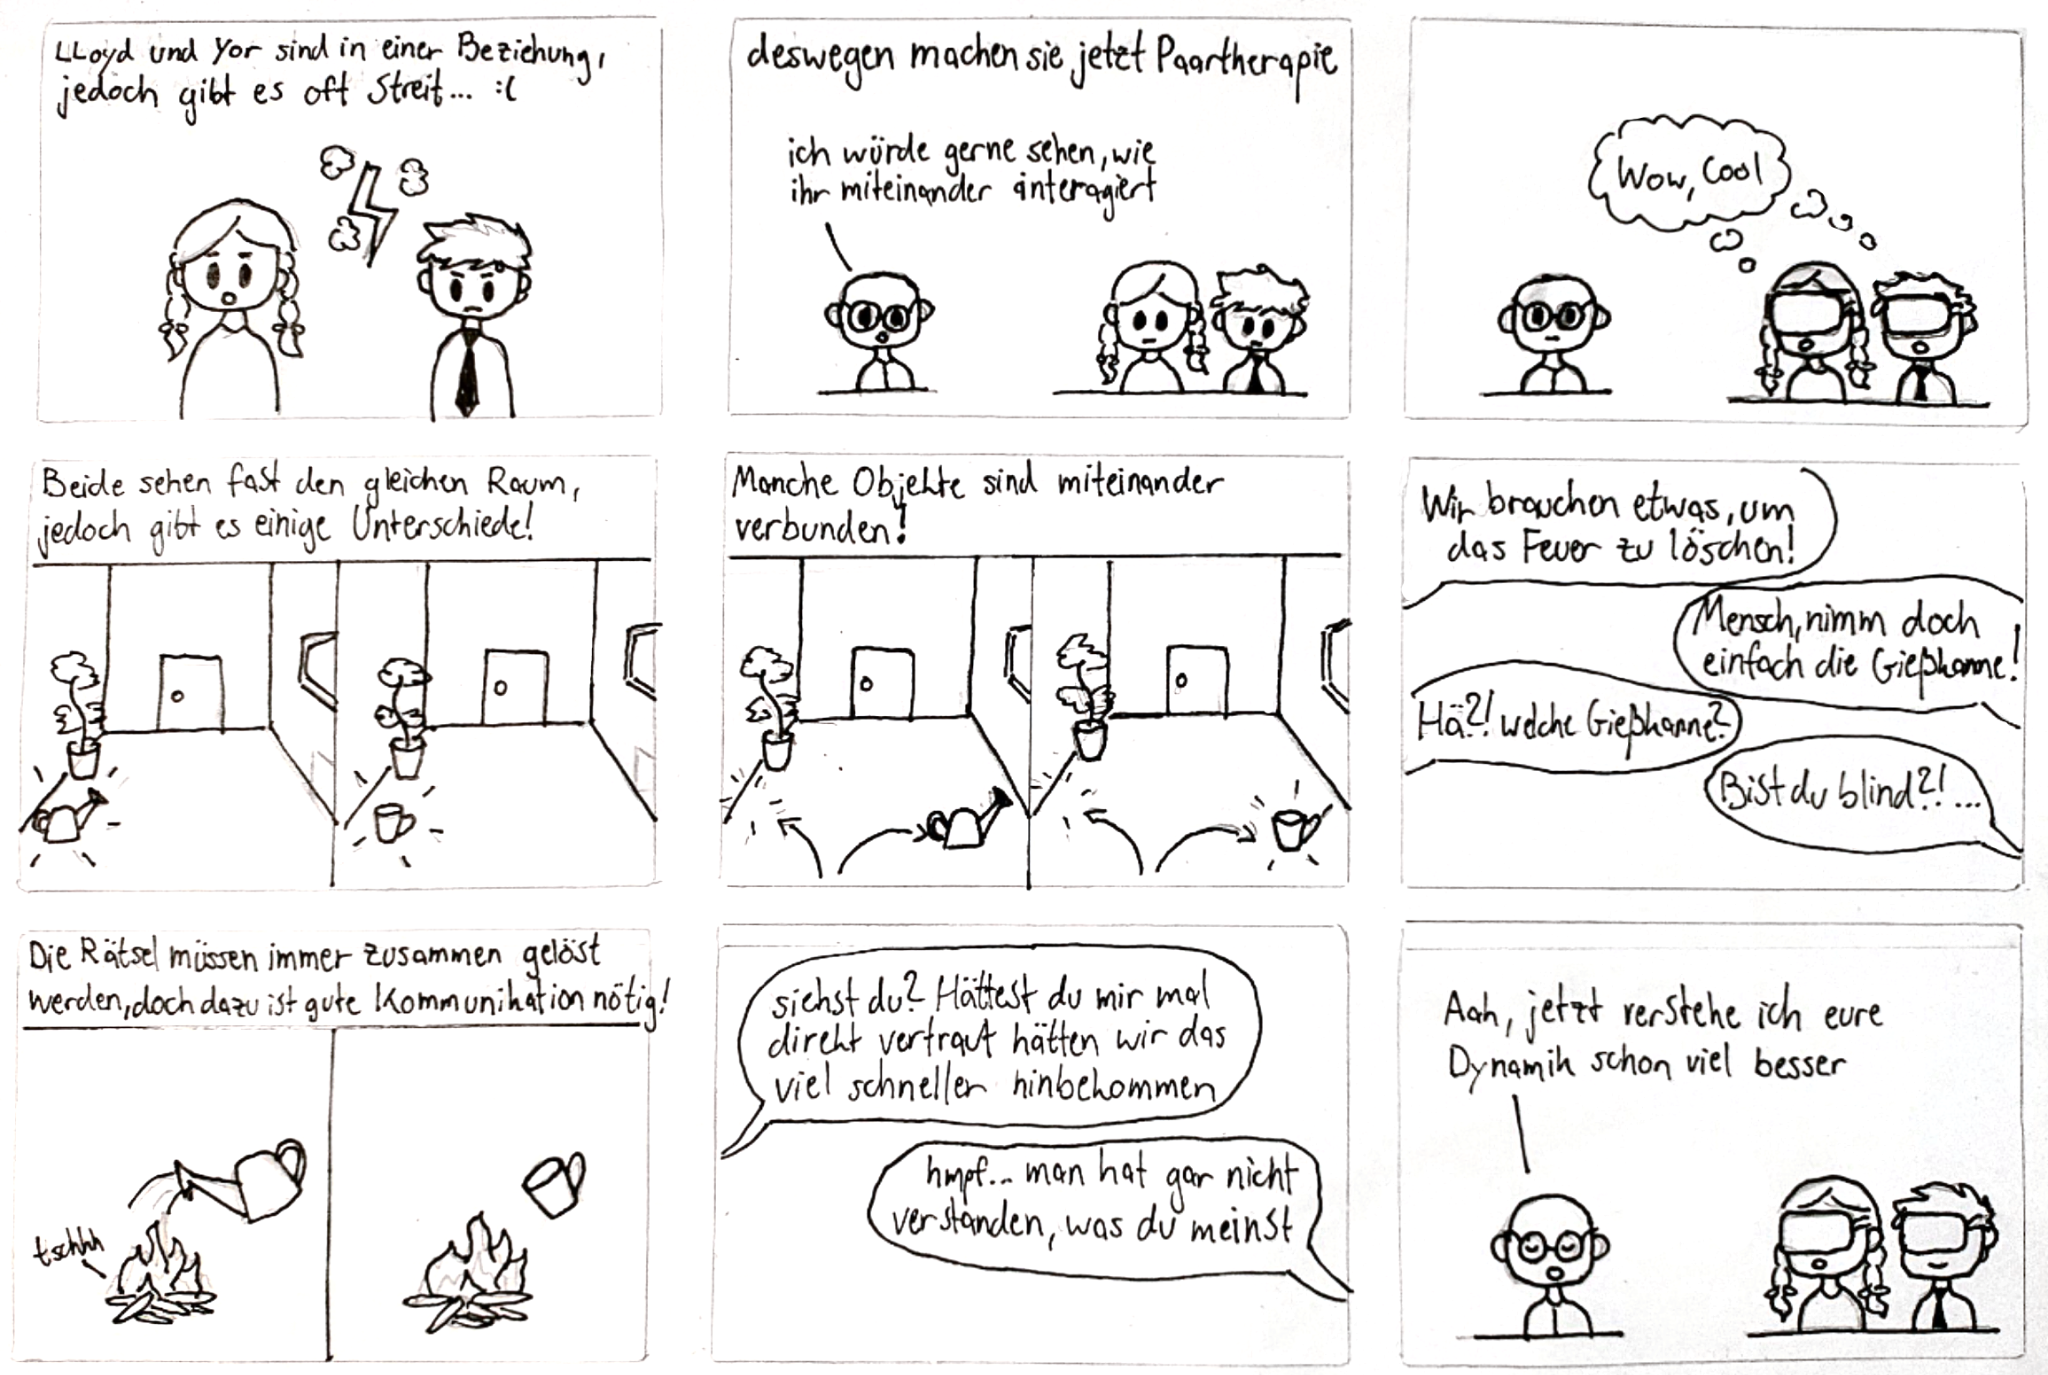 LLoyd und Yor sind in einer Beziehung,
jedoch gibt es oft Streit... :(
deswegen machen sie jetzt Paartherapie
ich würde gerne sehen, wie
ihr miteinander interagiert
Wow, Cool
Beide sehen fast den gleichen Raum,
jedoch gibt es einige Unterschiede!
Manche Objekte sind miteinander
verbunden!
Wir brauchen etwas, um
das Feuer zu löschen!
Mensch, nimm doch
einfach die Gießkanne!
Hä?! welche Gießkanne?
Bist du blind?!...
Die Rätsel müssen immer zusammen gelöst
werden, doch dazu ist gute Kommunikation nötig!
tschhh
siehst du? Hättest du mir mal
direkt vertraut hätten wir das
viel schneller hinbekommen
hmpf... man hat gar nicht
verstanden, was du meinst
Aah, jetzt verstehe ich eure
Dynamik schon viel besser